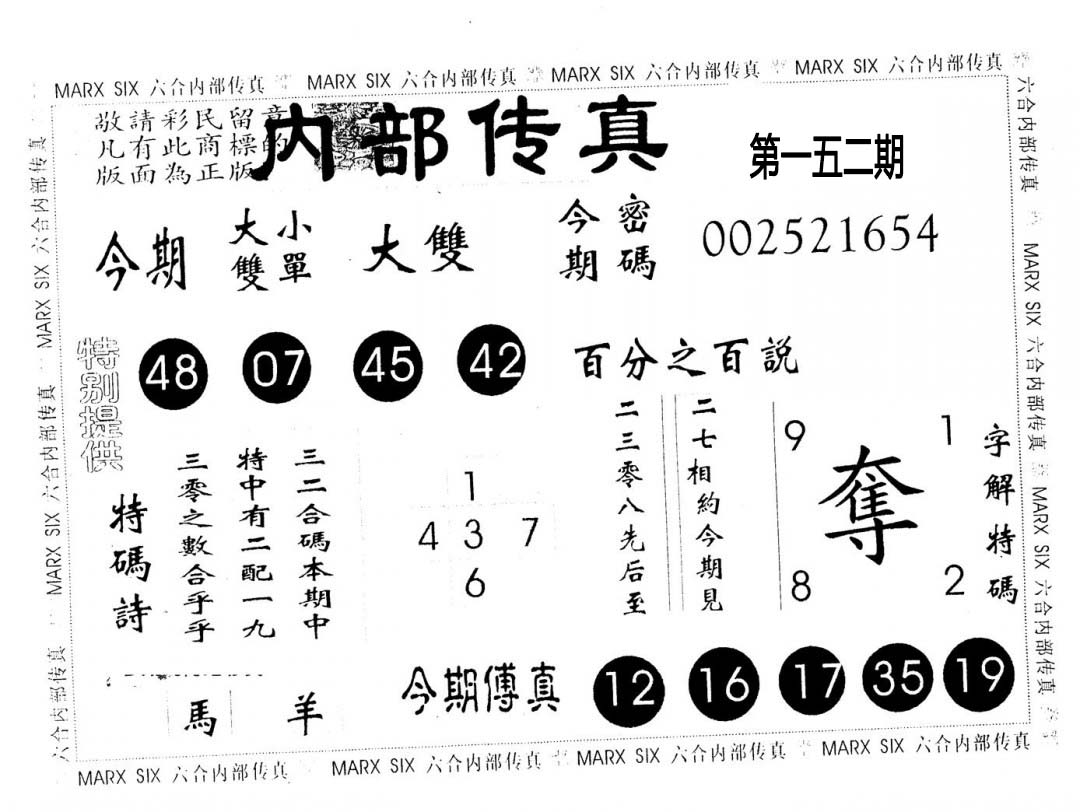 MARX SIX 六合内部传真 MARX SIX 六合内部传真 MARX SIX 六合内部传真 MARX SIX 六合内部传真
敬請彩民留意
凡有此商標的
版面為正版
内部传真
第一五二期
今期
大雙
小單
大雙
今期
密碼
002521654
特别提供
48 07 45 42
百分之百説
二七相約今期見
二三零八先后至
特碼詩
三二合碼本期中
特中有二配一九
三零之數合乎乎
1
4 3 7
6
9 1
奪
8 2
字解特碼
馬 羊
今期傅真
12 16 17 35 19
六合内部传真 MARX SIX 六合内部传真 MARX SIX 六合内部传真
六合内部传真 MARX SIX 六合内部传真 MARX SIX 六合内部传真
MARX SIX 六合内部传真 MARX SIX 六合内部传真 MARX SIX 六合内部传真 MARX SIX 六合内部传真